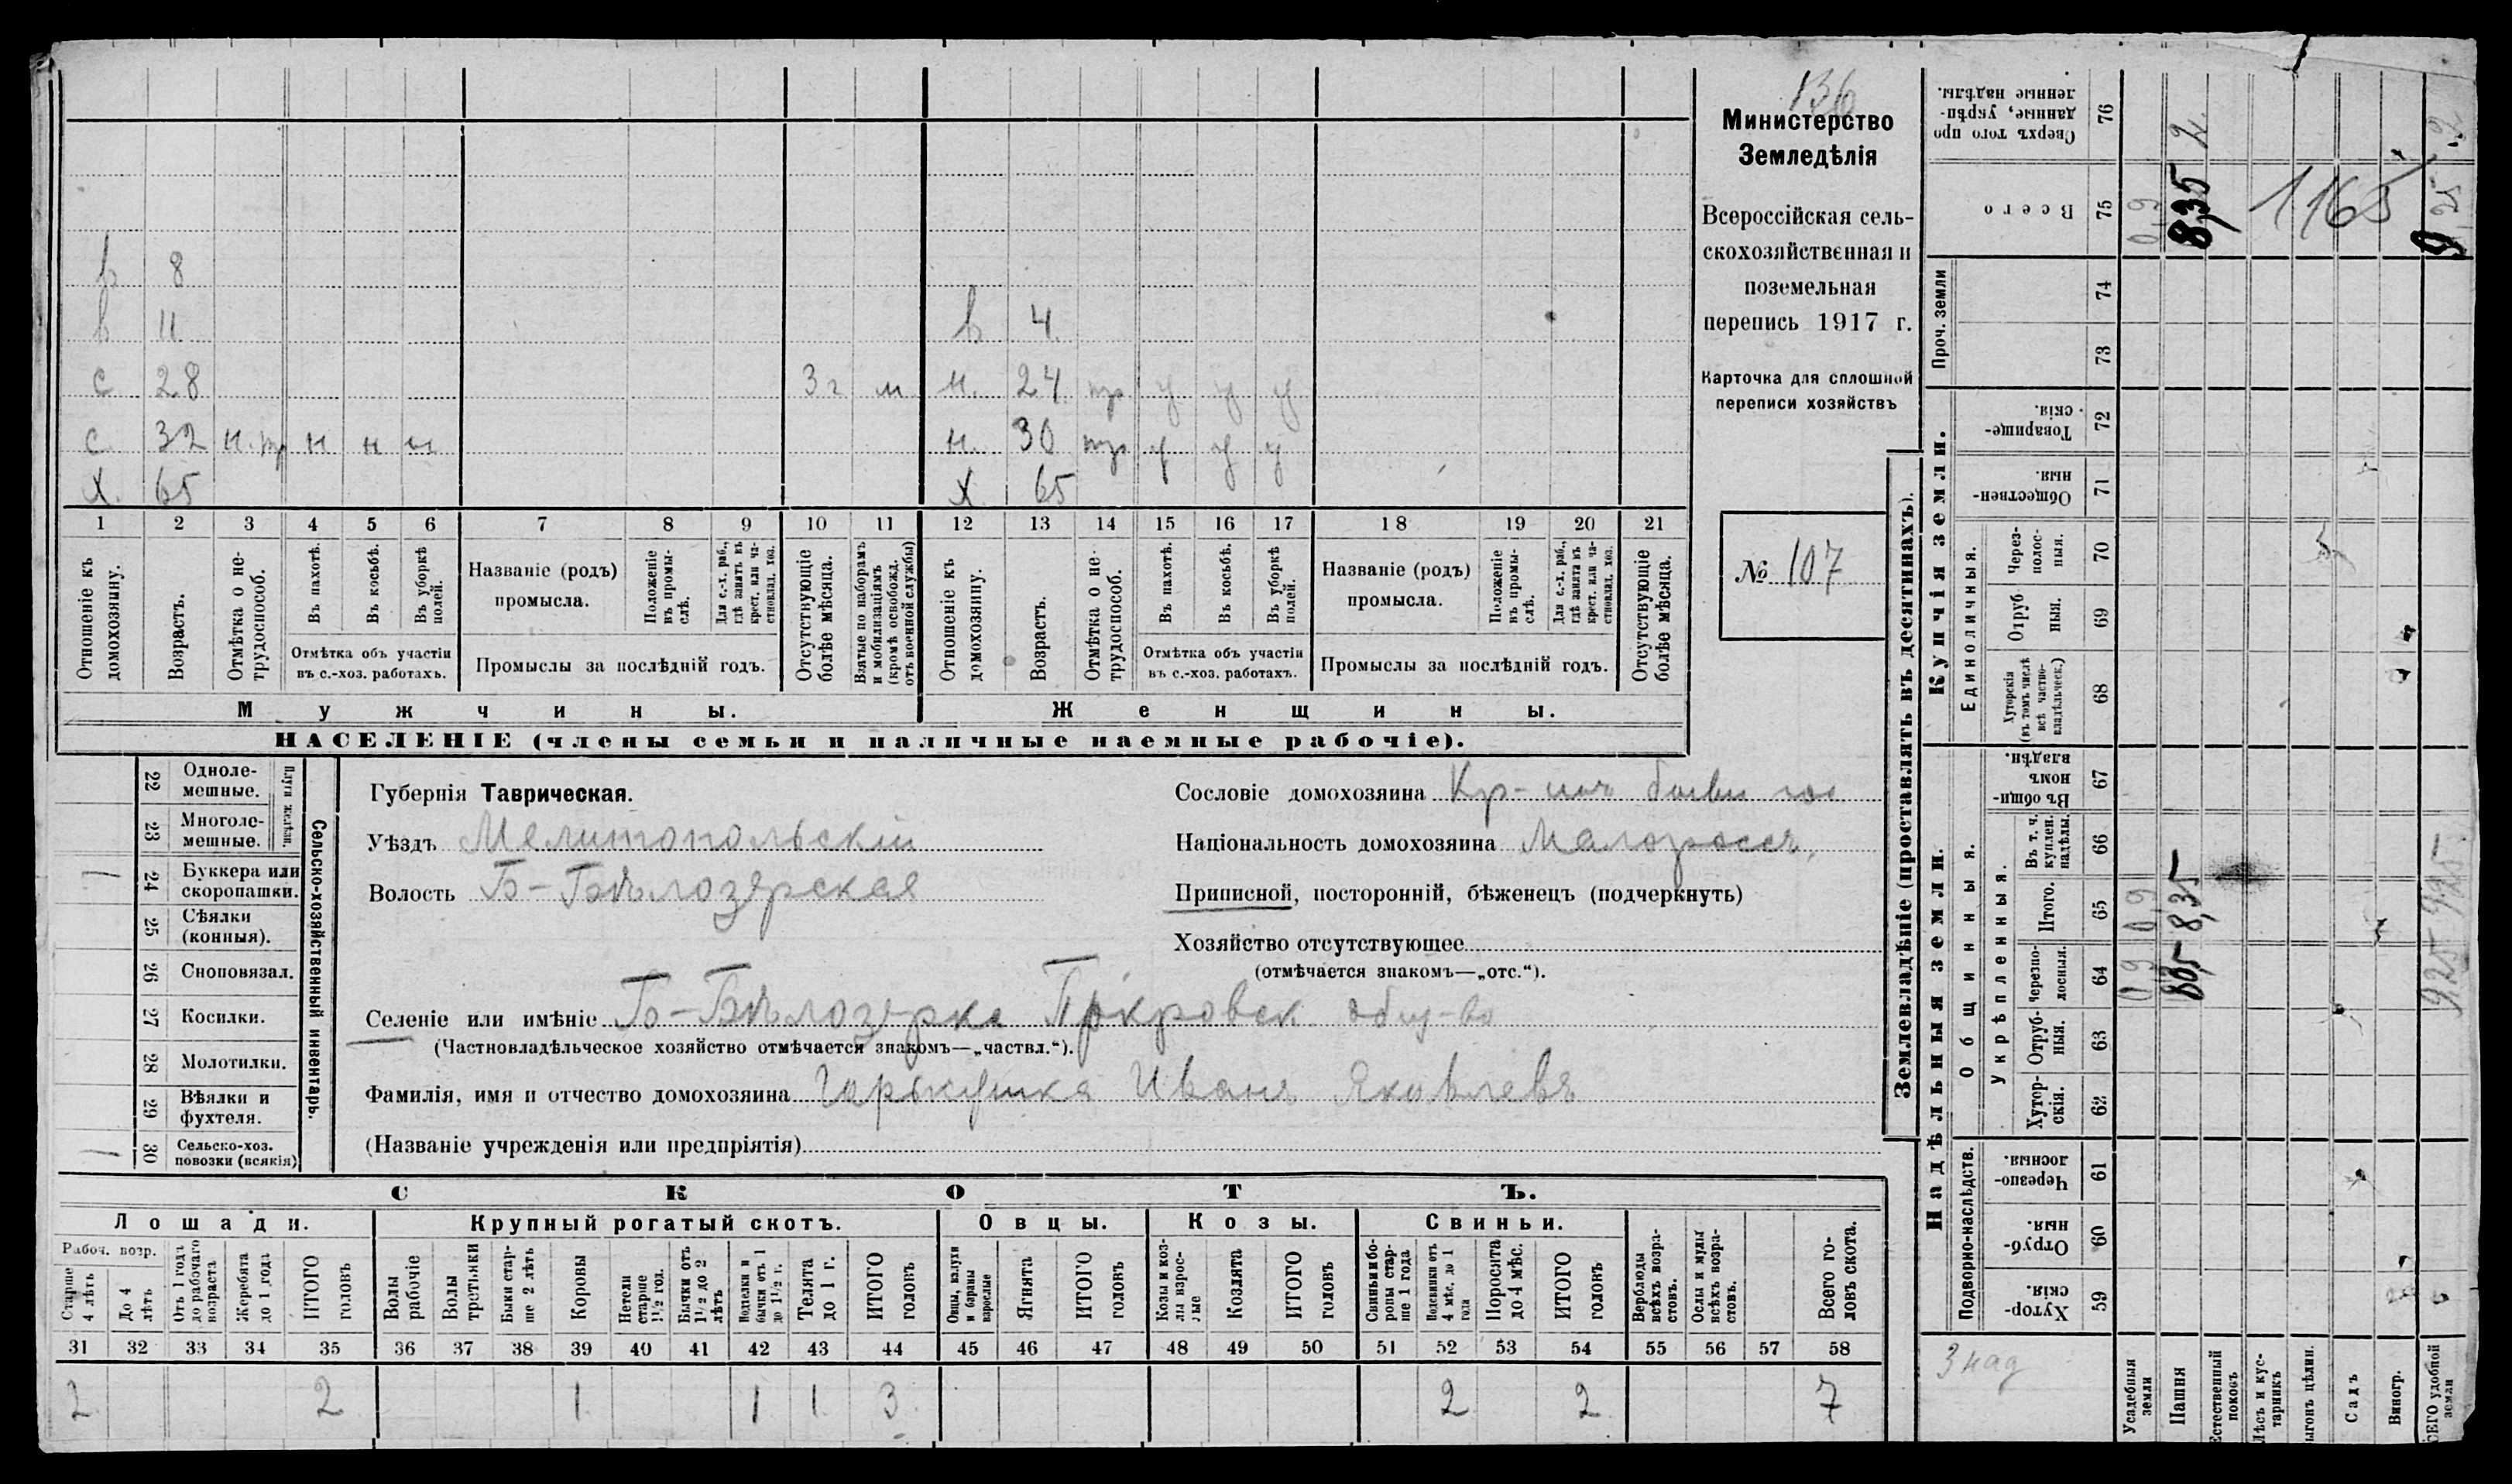 136
Министерство
Земледѣлія
Всероссійская сель-
скохозяйственная и
поземельная
перепись 1917 г.
Карточка для сплошной
переписи хозяйствъ
№ 107
в 8
в 11 в 4
с 28 3 г м н. 24 тр у у у
с 32 н. тр н н н н. 30 тр у у у
Х. 65 Х. 65
1 2 3 4 5 6 7 8 9 10 11 12 13 14 15 16 17 18 19 20 21
Отношеніе къ домохозяину.
Возрастъ.
Отмѣтка о не-трудоспособ.
Въ пахотѣ.
Въ косьбѣ.
Въ уборкѣ полей.
Отмѣтка объ участіи
въ с.-хоз. работахъ.
Названіе (родъ)
промысла.
Положеніе въ промы-слѣ.
Для с.-х. раб., гдѣ занятъ въ крест. или ча-стновлад. хоз.
Промыслы за послѣдній годъ.
Отсутствующіе болѣе мѣсяца.
Взятые по наборамъ и мобилизаціямъ (кромѣ освобожд. отъ военной службы)
Отношеніе къ домохозяину.
Возрастъ.
Отмѣтка о не-трудоспособ.
Въ пахотѣ.
Въ косьбѣ.
Въ уборкѣ полей.
Отмѣтка объ участіи
въ с.-хоз. работахъ.
Названіе (родъ)
промысла.
Положеніе въ промы-слѣ.
Для с.-х. раб., гдѣ занята въ крест. или ча-стновлад. хоз.
Промыслы за послѣдній годъ.
Отсутствующіе болѣе мѣсяца.
Мужчины. Женщины.
НАСЕЛЕНІЕ (члены семьи и наличные наемные рабочіе).
Сельско-хозяйственный инвентарь.
Плуги желѣзн.
22 Одноле-мешные.
23 Многоле-мешные.
24 Буккера или скоропашки. 1
25 Сѣялки (конныя).
26 Сноповязал.
27 Косилки.
28 Молотилки.
29 Вѣялки и фухтеля.
30 Сельско-хоз. повозки (всякія) 1
Губернія Таврическая.
Уѣздъ Мелитопольскій
Волость Б-Бѣлозерская
Сословіе домохозяина Кр-нъ бывш гос
Національность домохозяина Малороссъ.
Приписной, посторонній, бѣженецъ (подчеркнуть)
Хозяйство отсутствующее
(отмѣчается знакомъ—„отс.“).
Селеніе или имѣніе Б-Бѣлозерка Покровск общ-во
(Частновладѣльческое хозяйство отмѣчается знакомъ—„частвл.“).
Фамилія, имя и отчество домохозяина Гарькушка Иванъ Яковлевъ
(Названіе учрежденія или предпріятія)
СКОТЪ.
Лошади. Крупный рогатый скотъ. Овцы. Козы. Свиньи.
Рабоч. возр.
Старше 4 лѣтъ
До 4 лѣтъ
Отъ 1 года до рабочаго возраста
Жеребята до 1 года
ИТОГО головъ
Волы рабочіе
Волы третьяки
Быки стар-ше 2 лѣтъ
Коровы
Нетели старше 1½ год.
Бычки отъ 1½ до 2 лѣтъ
Подтелки и бычки отъ 1 до 1½ г.
Телята до 1 г.
ИТОГО головъ
Овцы, валухи и бараны взрослые
Ягнята
ИТОГО головъ
Козы и коз-лы взрос-лые
Козлята
ИТОГО головъ
Свиньи и бо-ровы стар-ше 1 года
Подсвинки отъ 4 мѣс. до 1 года
Поросята до 4 мѣс.
ИТОГО головъ
Верблюды всѣхъ возра-стовъ.
Ослы и мулы всѣхъ возра-стовъ.
Всего го-ловъ скота.
31 32 33 34 35 36 37 38 39 40 41 42 43 44 45 46 47 48 49 50 51 52 53 54 55 56 57 58
2 2 1 1 1 3 2 2 7
Землевладѣніе (проставлять въ десятинахъ).
Надѣльныя земли. Купчія земли.
Подворно-наслѣдств.
Общинныя.
Укрѣпленныя.
Единоличныя.
Проч. земли
76 Сверхъ того про данные, укрѣп-ленные надѣлы. 2
75 Всего 0,9 8,35 1165 9,25
74
73
72 Товарище-скія.
71 Обществен-ныя.
70 Через-полос-ныя.
69 Отруб-ныя.
68 Хуторскія (въ томъ числѣ всѣ частно-владѣльческ.)
67 Въ общин-номъ владѣн.
66 Въ т. ч. куплен. надѣлы.
65 Итого. 0,9 8,35 9,25
64 Черезпо-лосныя. 0,9 8,35 9,25
63 Отруб-ныя.
62 Хутор-скія.
61 Черезпо-лосныя.
60 Отруб-ныя.
59 Хутор-скія.
3 над
Усадебныя земли
Пашня
Естественный покосъ
Лѣсъ и кус-тарникъ
ыгонъ цѣлин.
Садъ
Виногр.
СЕГО удобной земли